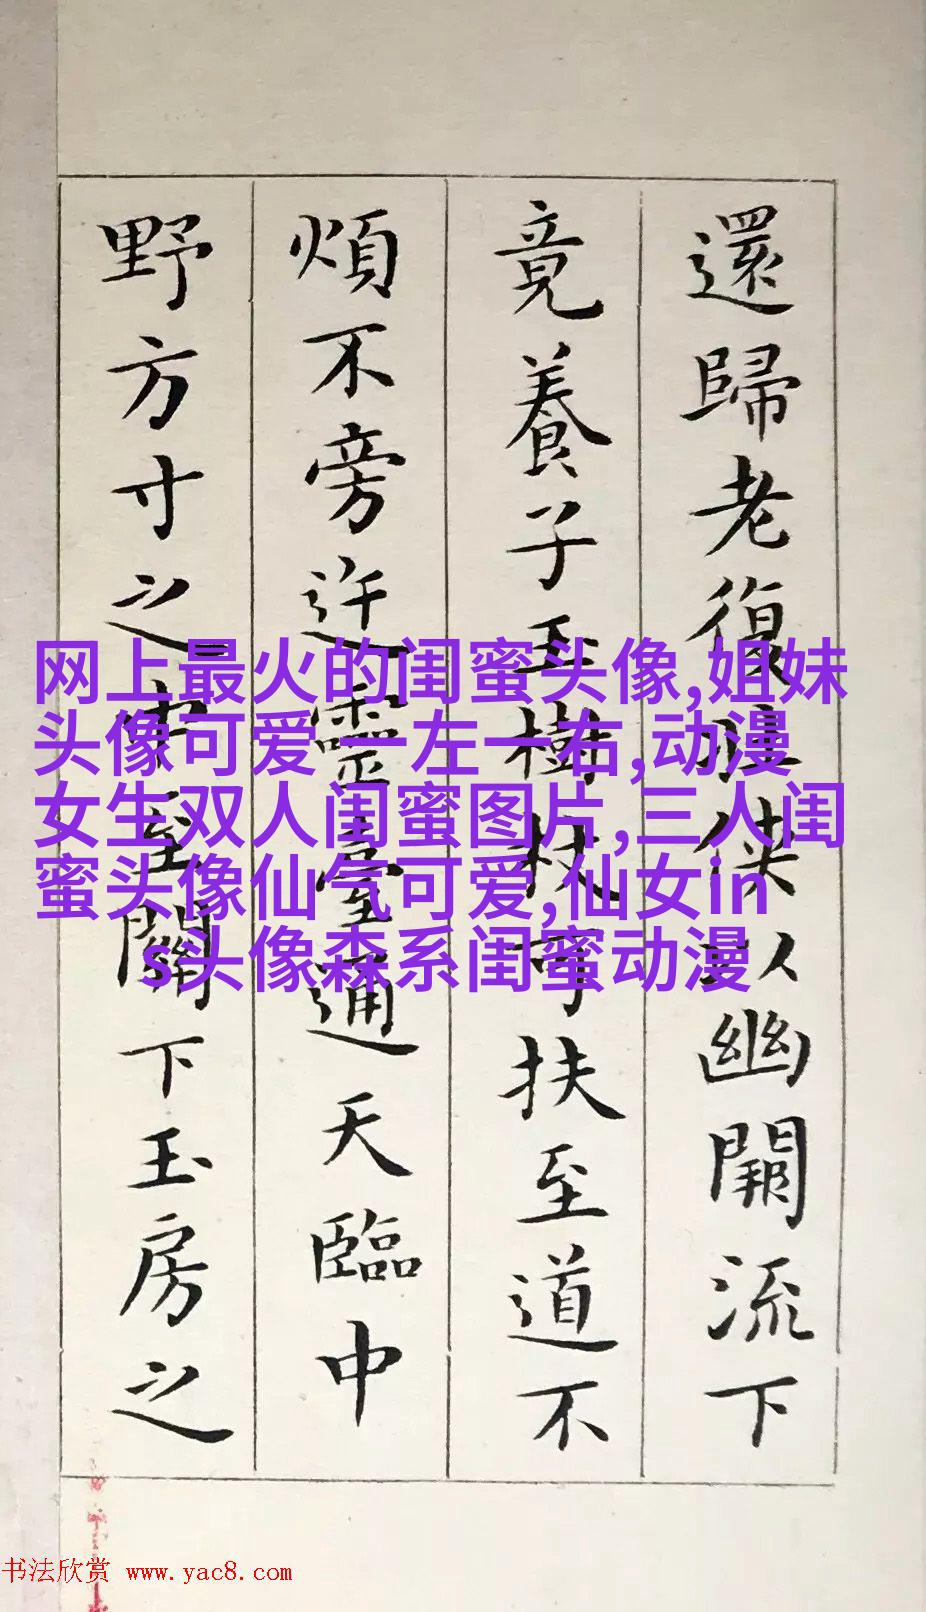 還歸老復壯俠以幽闕流下
竟養子玉樹杖可扶至道不
煩不旁迕靈臺通天臨中
野方寸之中至關下玉房之
网上最火的闺蜜头像,姐妹
头像可爱 一左一右,动漫
女生双人闺蜜图片,三人闺
蜜头像仙气可爱,仙女in
s头像森系闺蜜动漫
书法欣赏 www.yac8.com